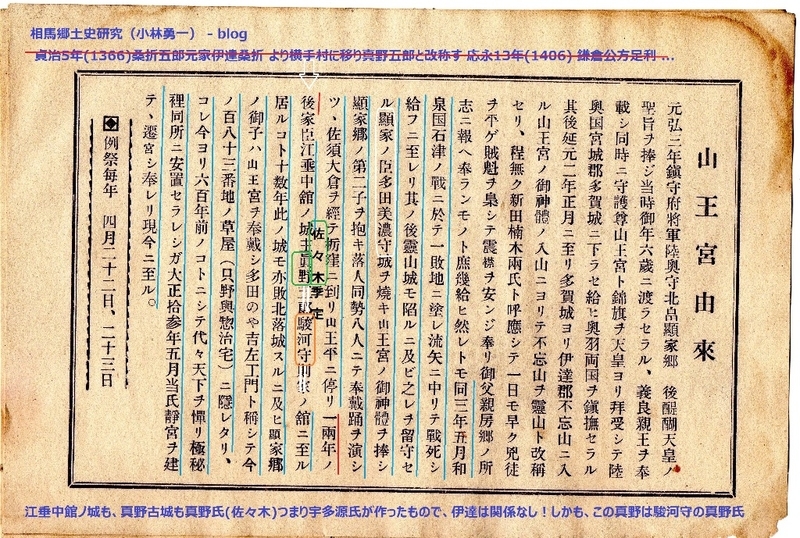 相馬郷土史研究（小林勇一） - blog
貞治5年(1366)桑折五郎元家伊達桑折 より横手村に移り真野五郎と改称す 応永13年(1406) 鎌倉公方足利 ...
山王宮由來
元弘三年鎮守府將軍陸奥守北畠顯家郷　後醍醐天皇ノ
聖旨ヲ捧ジ当時御年六歳ニ渡ラセラル、義良親王ヲ奉
載シ同時ニ守護尊山王宮ト錦旗ヲ天皇ヨリ拜受シテ陸
奥国宮城郡多賀城ニ下ラセ給ヒ奥羽両国ヲ鎭撫セラル
其後延元二年正月ニ至リ多賀城ヨリ伊達郡不忘山ニ入
ル山王宮ノ御神體ノ入山ニヨリテ不忘山ヲ靈山ト改稱
セリ、程無ク新田楠木兩氏ト呼應シテ一日モ早ク兇徒
ヲ平ゲ賊魁ヲ梟シテ震襟ヲ安ンジ奉リ御父親房郷ノ所
志ニ報ヘ奉ランモノト庶幾給ヒ然レトモ同三年五月和
泉国石津ノ戰ニ於テ一敗地ニ塗レ流矢ニ中リテ戰死シ
給フニ至レリ其ノ後靈山城モ陥ルニ及ビ之レヲ留守セ
ル顯家ノ臣多田美濃守城ヲ燒キ山王宮ノ御神體ヲ捧シ
顯家郷ノ第二子ヲ抱キ落人同勢八人ニテ奉戴踊ヲ演シ
ツヽ佐須大倉ヲ經テ栃窪ニ到リ山王平ニ停リ一兩年ノ
佐々木季定
後家臣江垂中舘ノ城主眞野 駿河守 ノ舘ニ至ル
居ルコト十数年此ノ城モ亦敗北落城スルニ及ヒ顯家郷
ノ御子ハ山王宮ヲ奉戴シ多田のや吉左エ門ト稱シテ今
ノ百八十三番地ノ草屋（只野與惣治宅）ニ隠レタリ、
コレ今ヨリ六百年前ノコトニシテ代々天下ヲ憚リ極秘
裡同所ニ安置セラレシガ大正拾参年五月当氏靜宮ヲ建
テ、遷宮シ奉レリ現今ニ至ル。
◆例祭每年　四月二十二日、二十三日
江垂中館ノ城も、真野古城も真野氏(佐々木)つまり宇多源氏が作ったもので、伊達は関係なし！しかも、この真野は駿河守の真野氏